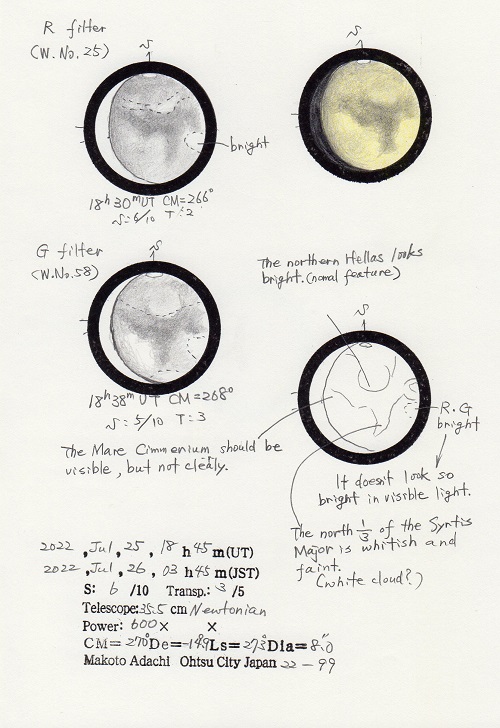 R filter
(W.No.25)
S
S
bright
18h 30m UT CM=266°
S=6/10 T=2
G filter
(W.No.58)
S
The northern Hellas looks
bright.(nomal feature)
S
18h 38m UT CM=268°
S=5/10 T=3
R.G
bright
The Mare Cimmenium should be
visible, but not clealy.
It doesn't look so
bright in visible light.
The north 1/3 of the Syrtis
Major is whitish and
faint.
(white cloud?)
2022, Jul, 25, 18 h 45 m(UT)
2022, Jul, 26, 03 h 45 m(JST)
S: 6 /10 Transp.: 3 /5
Telescope:35.5 cm Newtonian
Power: 600× ×
CM=270° De=-14.9° Ls=273° Dia=8.0"
Makoto Adachi Ohtsu City Japan 22-99